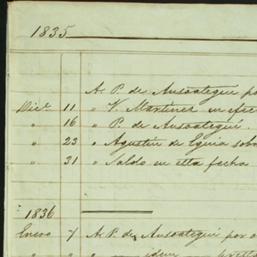 1835
A P. de Ansoategui po
Dice. 11 " V. Martinez en efec
" 16 " P. de Ansoategui.
" 23 " Agustin de Eguia sob
" 31 " Saldo en esta fecha
1836
Enero 7 A P. de Ansoategui por
" " " idem